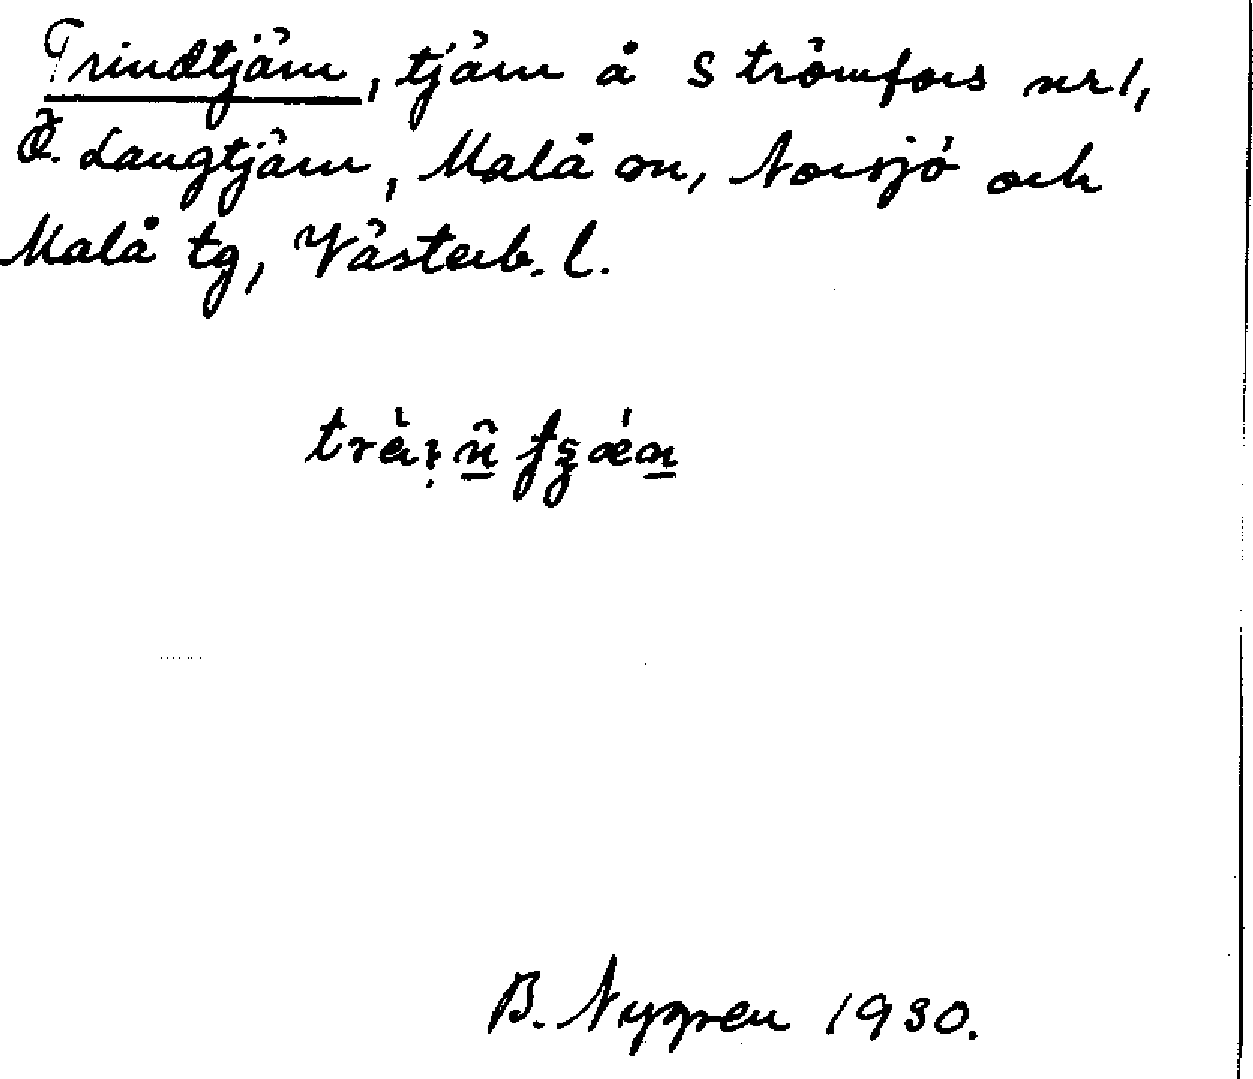 Trindtjärn, tjärn å Strömfors nr 1,
Ö. Långtjärn, Malå sn, Norsjö och
Malå tg, Västerb. l.
B. Nygren 1930.